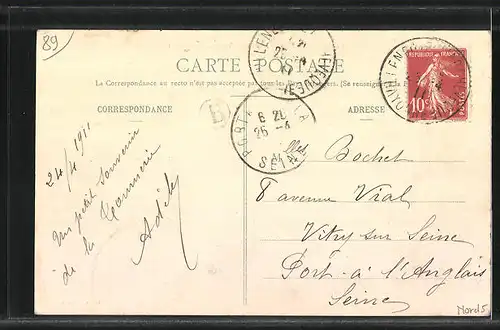 89
CARTE POSTALE
La Correspondance au recto n'est pas acceptée par tous les pays
(Se renseigner
CORRESPONDANCE
ADRESSE
RÉPUBLIQUE FRANÇAISE
10c
POSTES
6 20
25 -4
SEINE
24/4 1911
Un petit souvenir
de la Tournerie
Adèle
Mlles Bochet
8 avenue Vial
Vitry sur Seine
Port-à l'Anglais
Seine
Nord 5